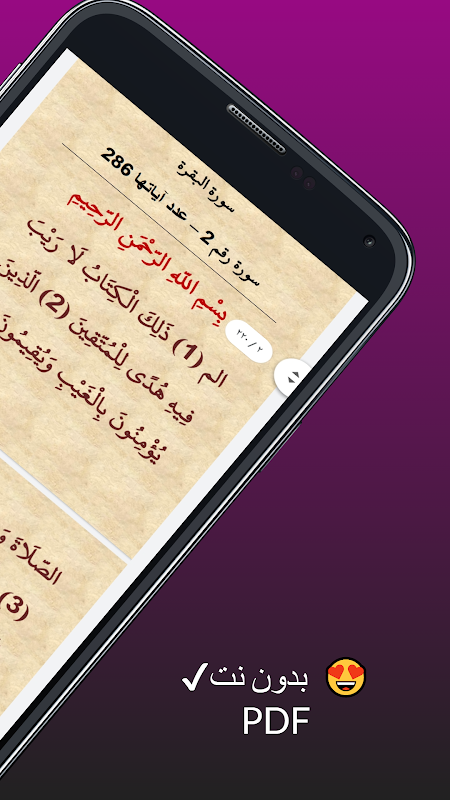 سورة البقرة
سورة رقم 2 – عدد آياتها 286
بِسْمِ اللَّهِ الرَّحْمَنِ الرَّحِيمِ
الم (1) ذَلِكَ الْكِتَابُ لَا رَيْبَ
فِيهِ هُدًى لِلْمُتَّقِينَ (2) الَّذِينَ
يُؤْمِنُونَ بِالْغَيْبِ وَيُقِيمُونَ
٢ / ٢٢٠
الصَّلَاةَ
(3)
بدون نت✓
PDF